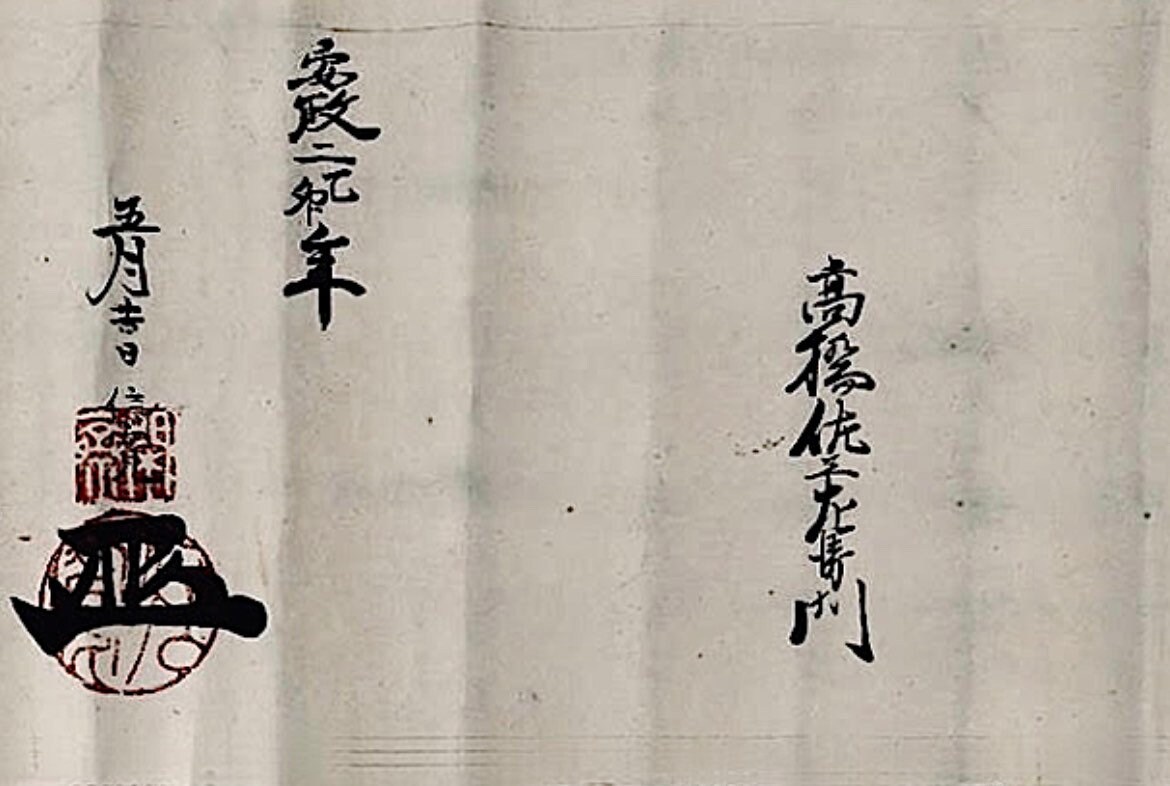 高橋佐五左衛門
安政二乙卯年
五月吉日